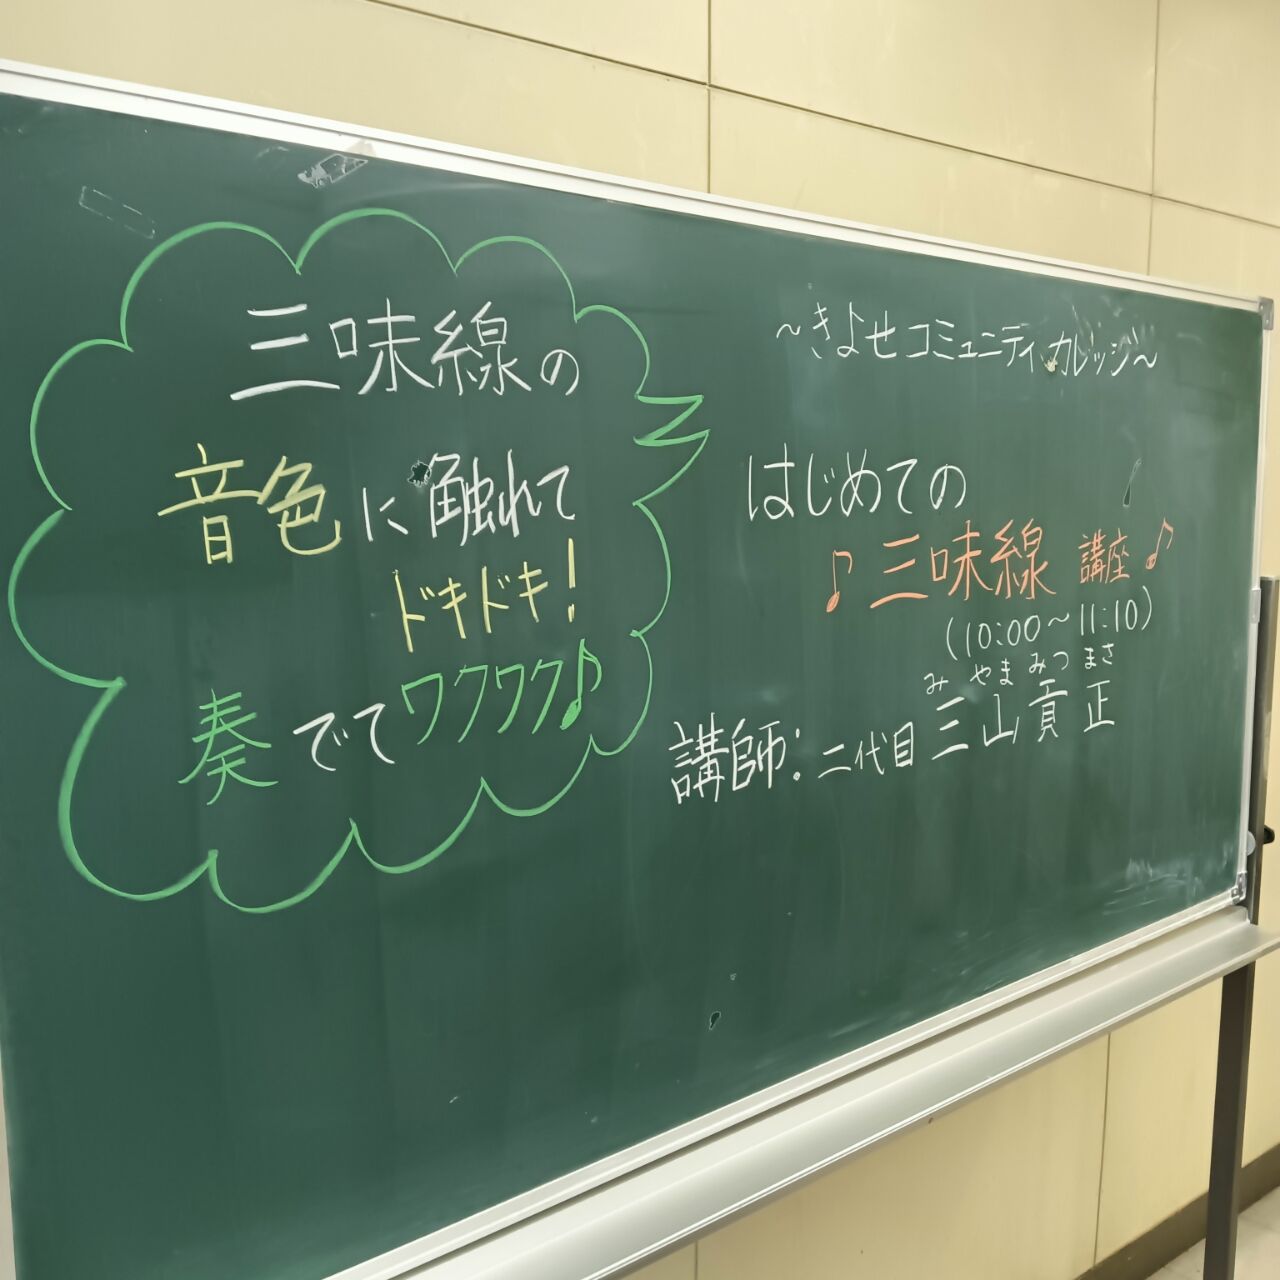 三味線の
音色に触れて
ドキドキ!
奏でてワクワク♪
~きよせコミュニティカレッジ~
はじめての
♪三味線講座♪
(10:00~11:10)
みやまみつまさ
講師:二代目三山貢正